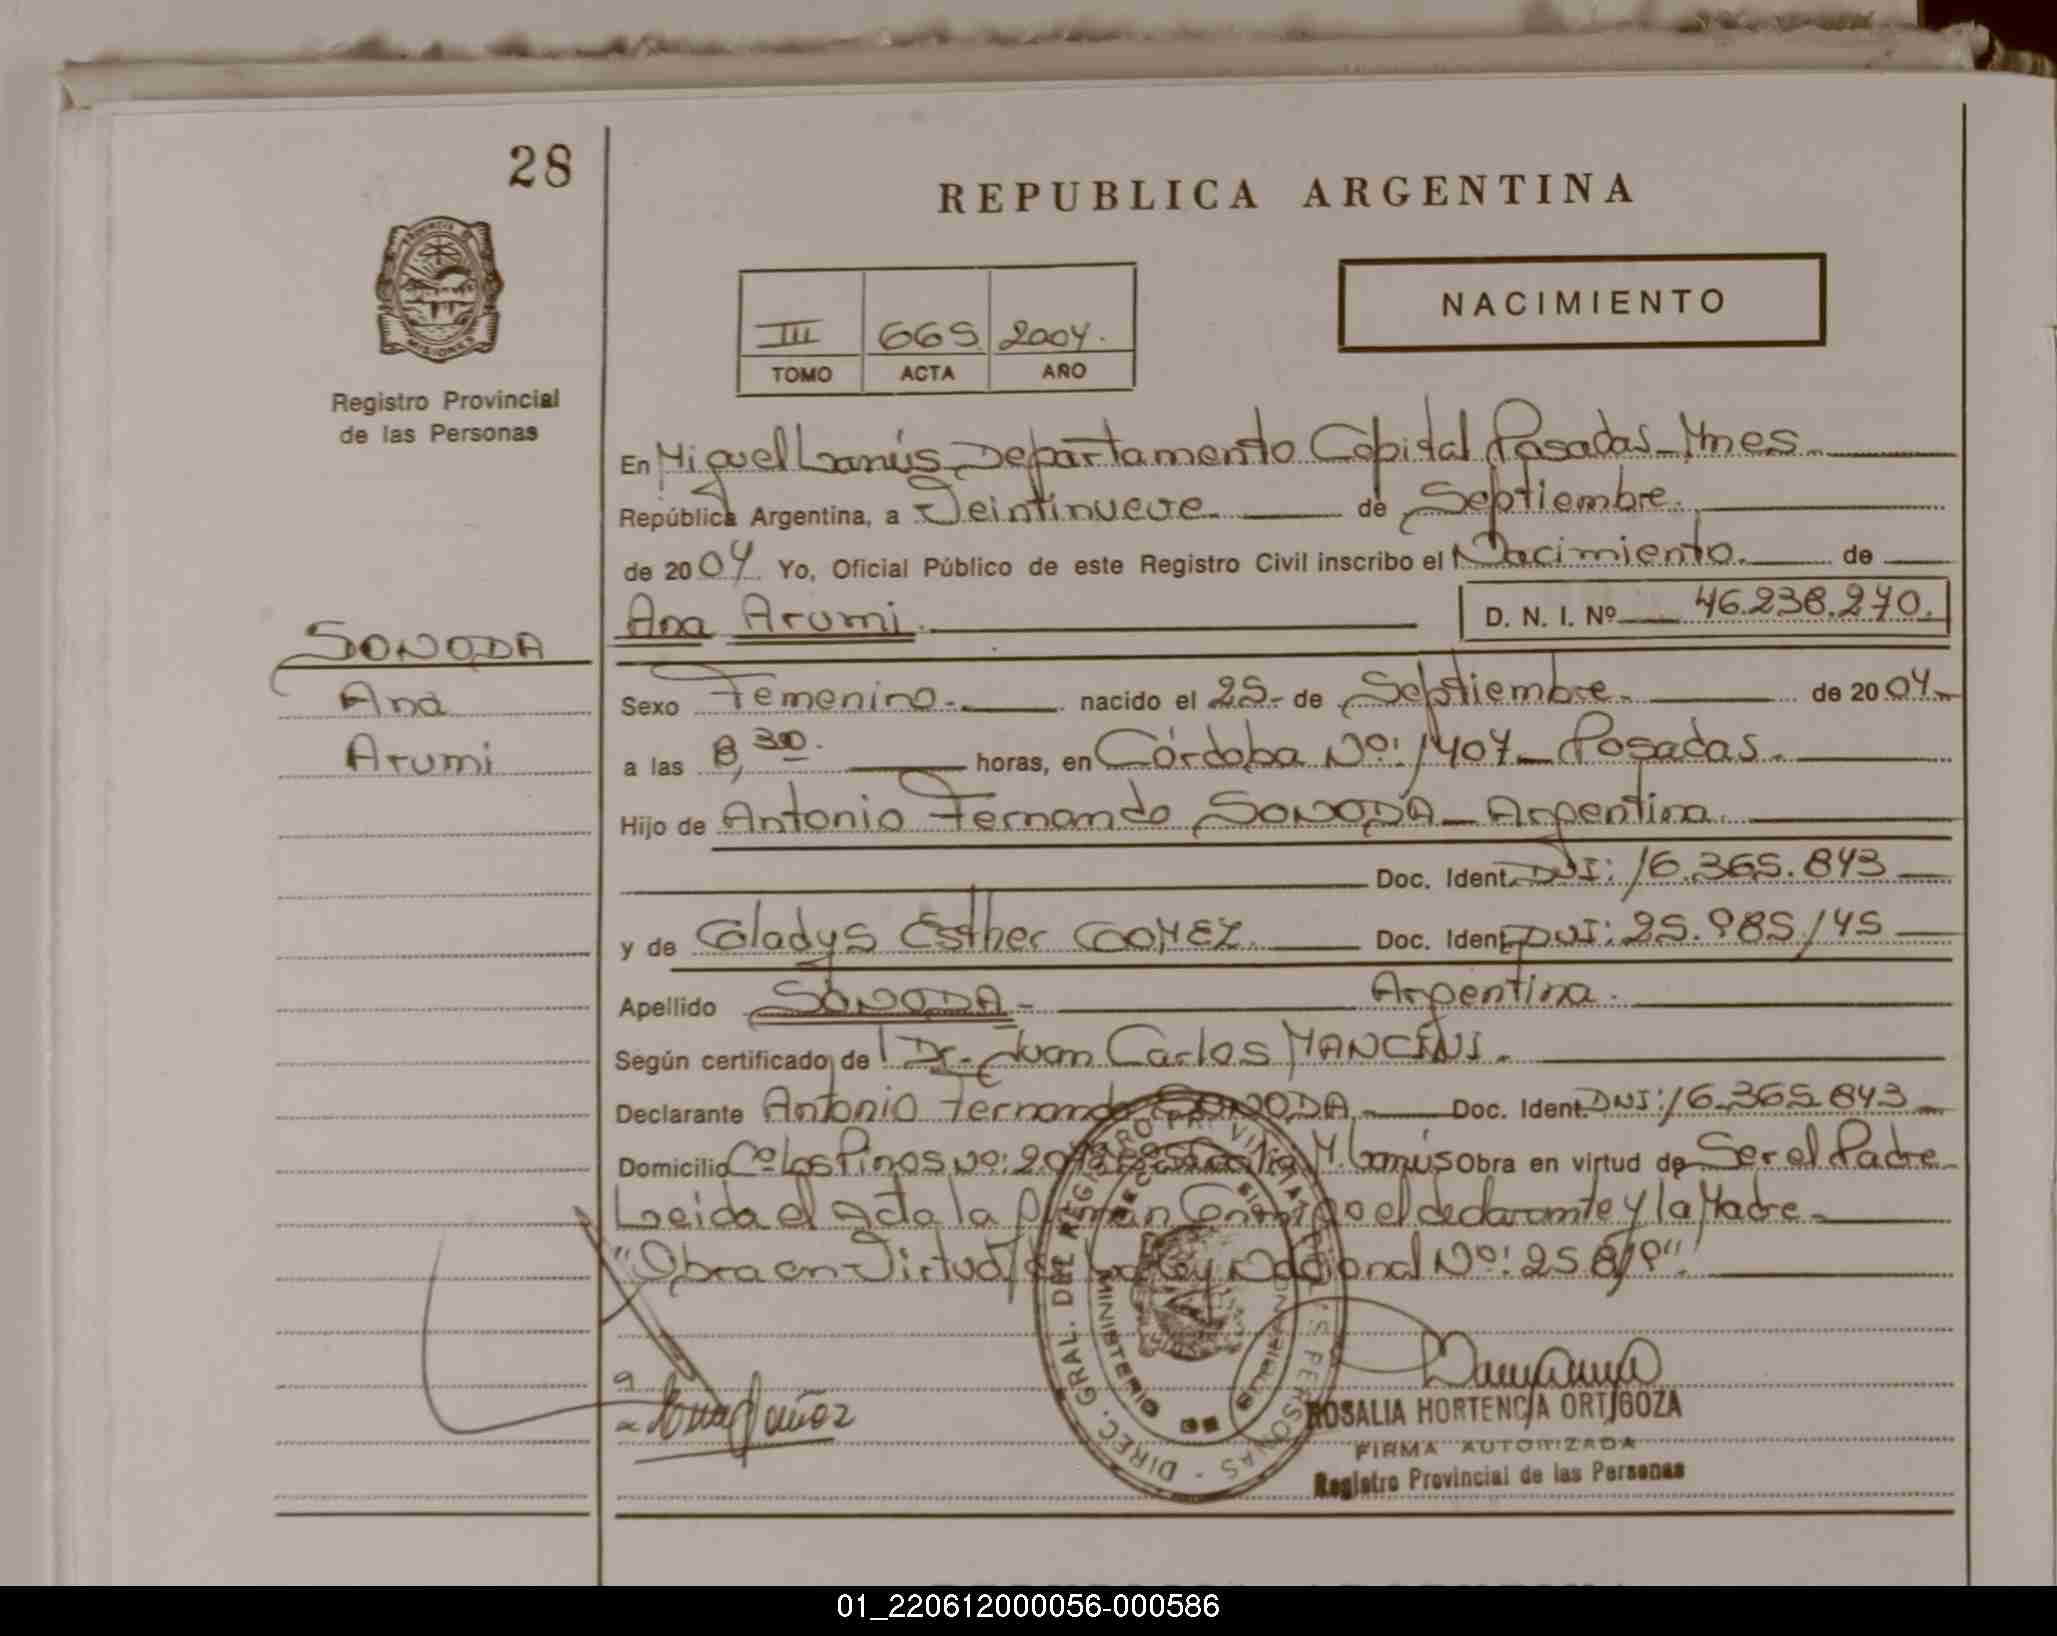 28
REPUBLICA ARGENTINA
NACIMIENTO
III 665 2004.
TOMO ACTA AÑO
MISIONES
Registro Provincial
de las Personas
En Miguel Lanús Departamento Capital Posadas Mnes
República Argentina, a Veintinueve de Septiembre.
de 2004 Yo, Oficial Público de este Registro Civil inscribo el Nacimiento. de
SONODA
Ana
Arumi
Ana Arumi.
D. N. I. Nº 46.238.270.
Sexo Femenino. nacido el 25 de Septiembre de 2004
a las 8,30. horas, en Córdoba Nº: 1407 Posadas.
Hijo de Antonio Fernando SONODA Argentina
Doc. Ident. DNI: 16.365.843
y de Gladys Esther GOMEZ. Doc. Ident. DNI: 25.985.145
Apellido SONODA Argentina.
Según certificado de Dr. Juan Carlos MANCINI.
Declarante Antonio Fernando SONODA Doc. Ident. DNI: 16.365.843
Domicilio Cº Los Pinos Nº: M. Lanús Obra en virtud de Ser el Padre
Leida el Acta la firman Conmigo el declarante y la Madre
"Obra en Virtud de la Ley Nacional Nº: 25.819".
DIREC. GRAL. DEL REGISTRO PROVINCIAL DE LAS PERSONAS
MINISTERIO DE GOBIERNO
ROSALIA HORTENCIA ORTIGOZA
FIRMA AUTORIZADA
Registro Provincial de las Personas
01_220612000056-000586